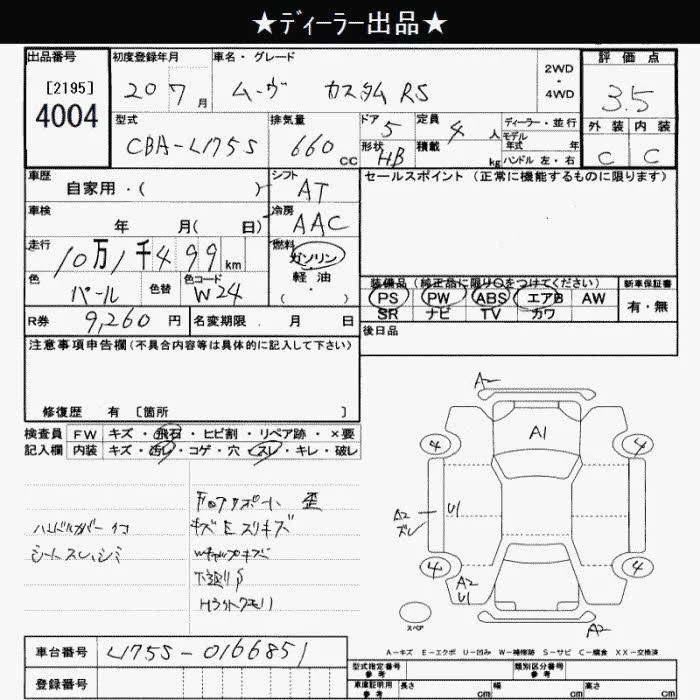 ★ディーラー出品★
出品番号 初度登録年月 車名・グレード 2WD・4WD 評価点
[2195] 20 7月 ムーヴ カスタム RS 3.5
4004
型式 排気量 ドア 5 定員 4人 ディーラー・並行 外装 内装
CBA-L175S 660cc 形状 HB 積載 kg モデル年式 年 C C
ハンドル 左・右
車歴 自家用・( ) シフト AT セールスポイント(正常に機能するものに限ります)
車検 年 月( 日) 冷房 AAC
走行 10万1千499km 燃料 ガソリン・軽油・( )
色 パール 色替 色コード W24 装備品(純正品に限り○をつけてください) 新車保証書
PS PW ABS エアB AW 有・無
R券 9,260円 名変期限 月 日 SR ナビ TV カワ
注意事項申告欄(不具合内容等は具体的に記入して下さい) 後日品
修復歴 有 [箇所 ]
検査員 FW キズ・飛石・ヒビ割・リペア跡・×要
記入欄 内装 キズ・汚レ・コゲ・穴・スレ・キレ・破レ
A2
A1
4 4
歪
ハンドルカバー
キズEスリキズ
A2 U1
シートスレ,シミ
4 4
A2
U1
スペア
A2
A-キズ E-エクボ U-凹み W-補修跡 S-サビ C-腐食 XX-交換済
車台番号 L175S-0166851
型式指定番号 参考 類別区分番号 参考
登録番号 車庫証明用 参考 長さ cm 幅 cm 高さ cm